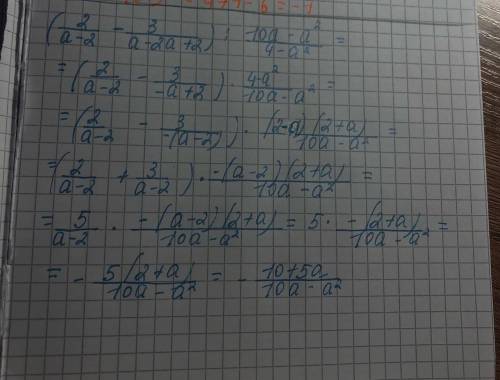 - 4 7 7 - 6 = - 1
(2/(a-2) - 3/(a-2a+2)) : (10a-a²)/(4-a²) =
= (2/(a-2) - 3/(-a+2)) · (4-a²)/(10a-a²) =
= (2/(a-2) - 3/(-(a-2))) · ((2-a)(2+a))/(10a-a²) =
= (2/(a-2) + 3/(a-2)) · (-(a-2)(2+a))/(10a-a²) =
= 5/(a-2) · (-(a-2)(2+a))/(10a-a²) = 5 · (-(2+a))/(10a-a²) =
= - (5(2+a))/(10a-a²) = - (10+5a)/(10a-a²)